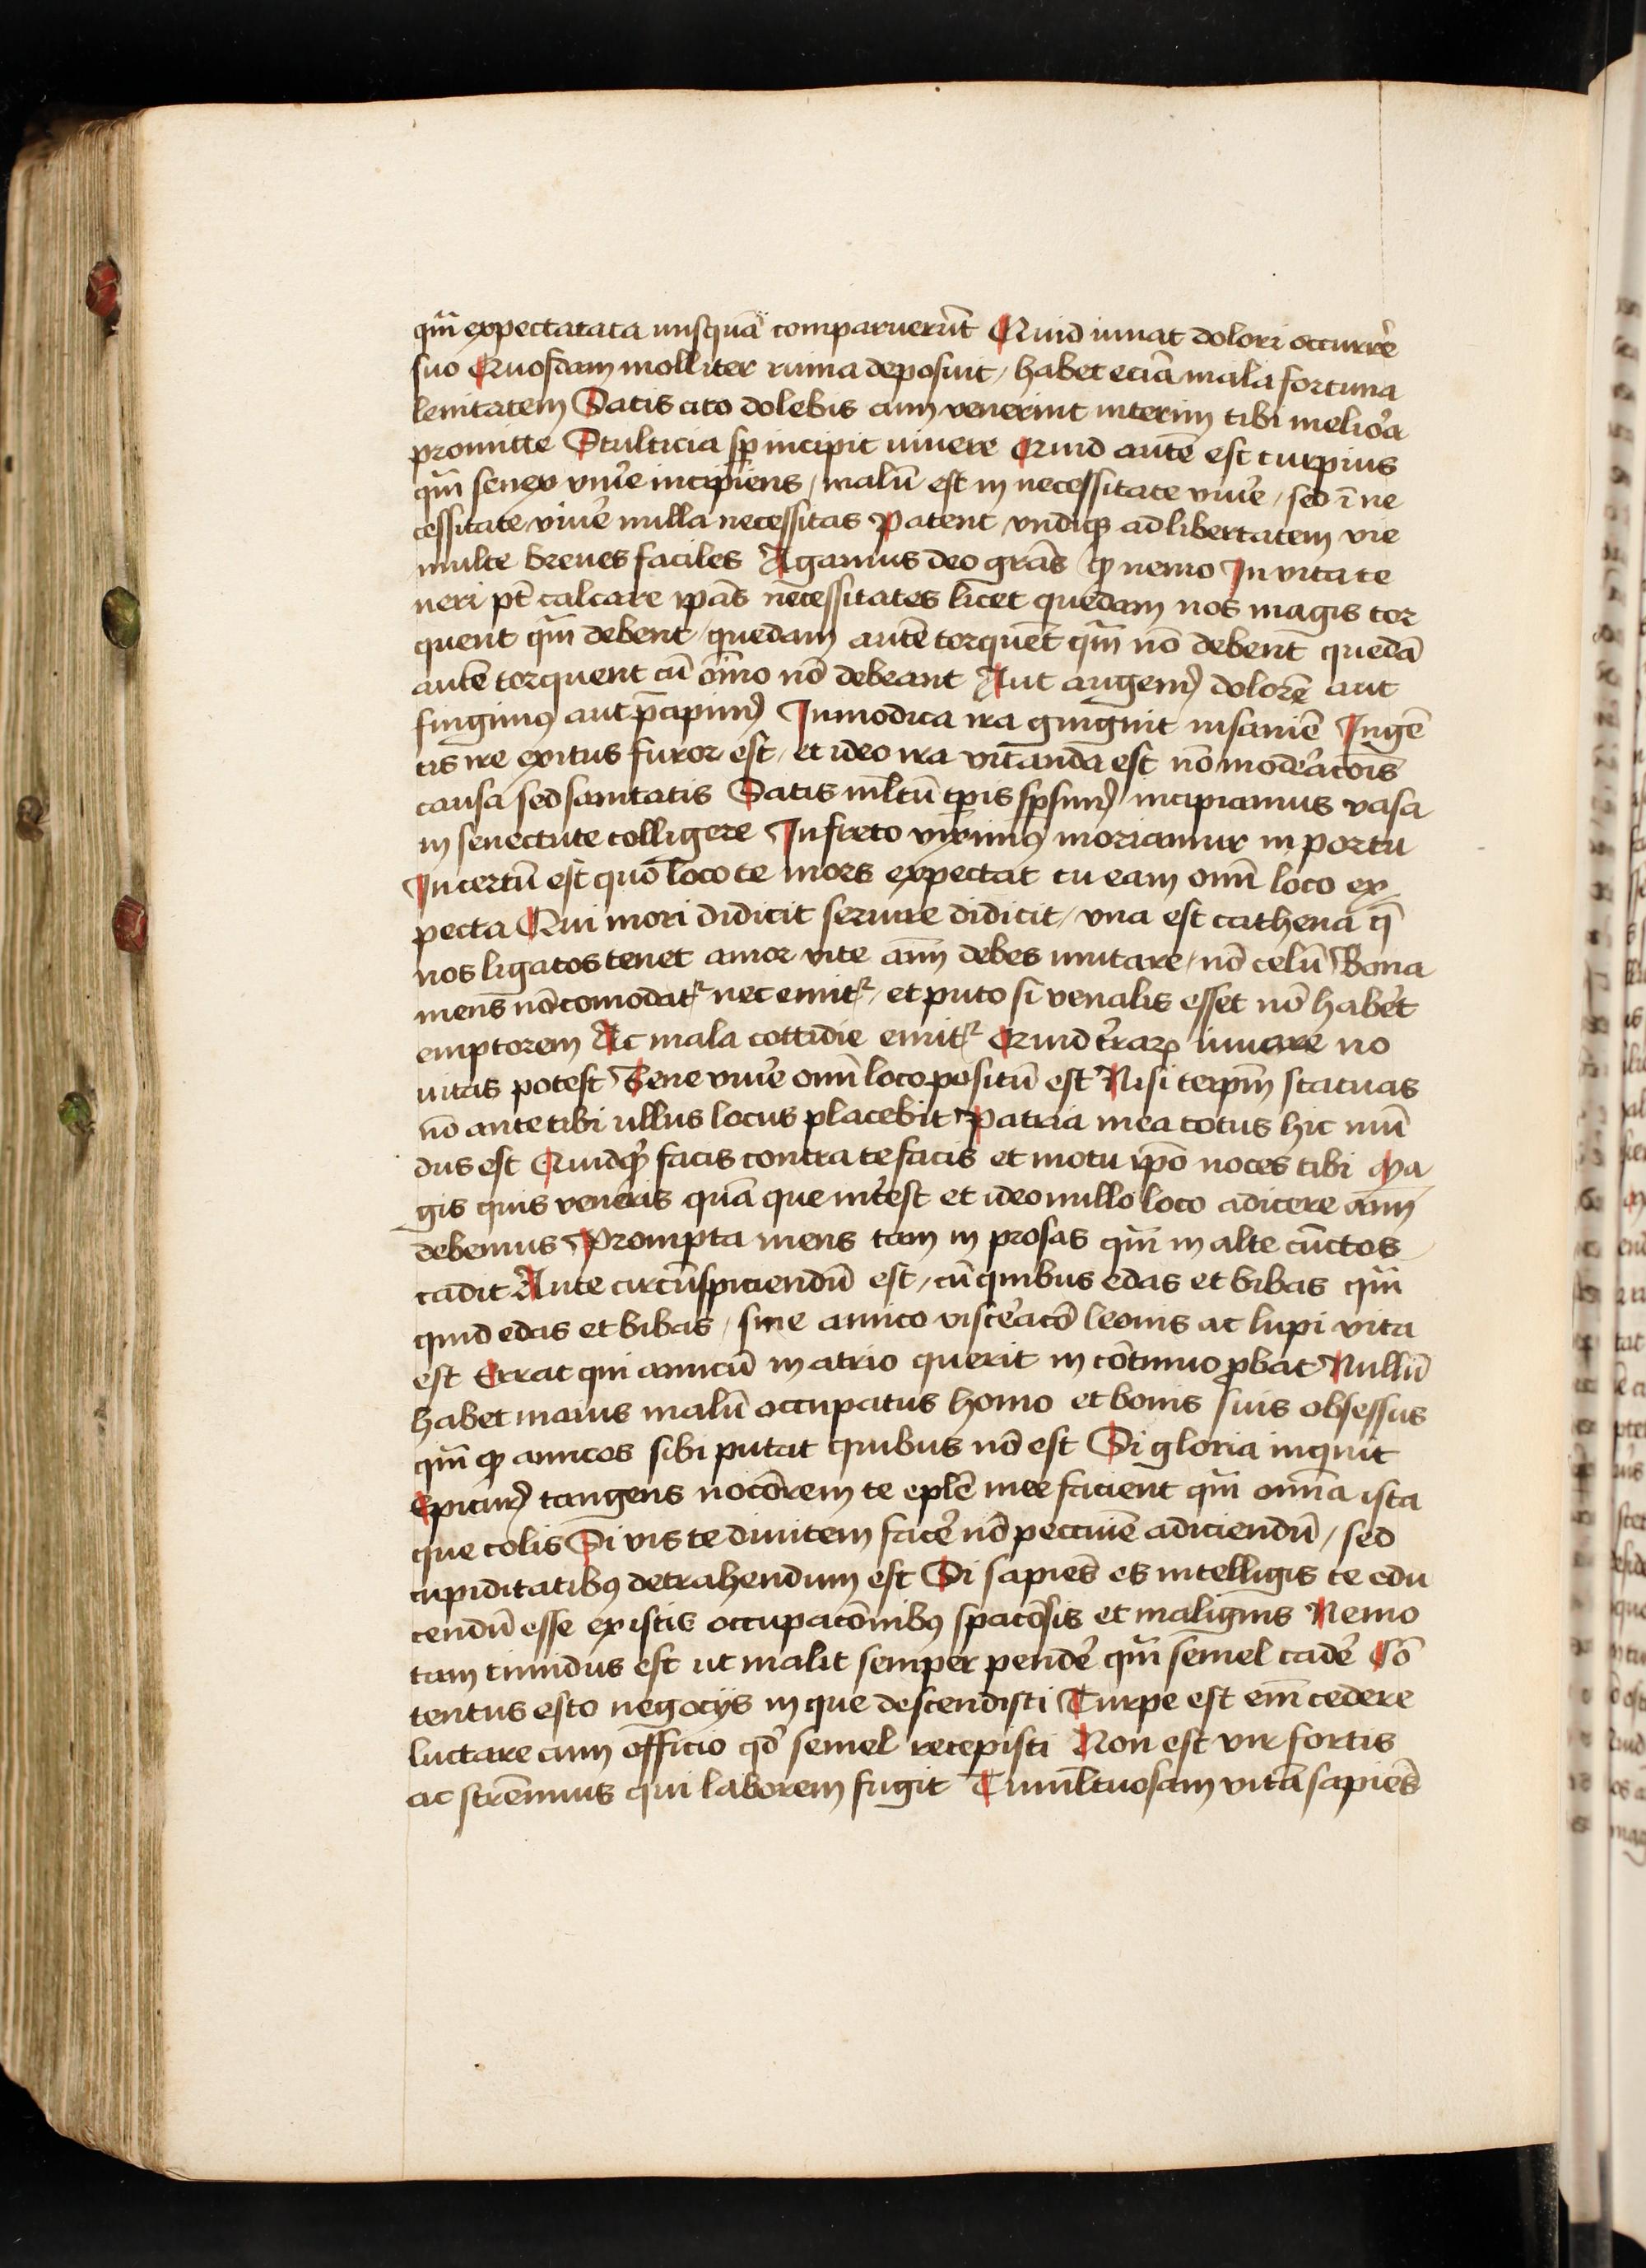 qm̄ expectatata nusquā comparuerūt Quid iuuat dolori occurrẻ
suo Quosdam molliter ruina deposuit / habet eciā mala fortuna
lenitatem Satis cito dolebis cum venerint interim tibi meliora
promitte Stulticia sp̄ incipit viuere Quid autē est turpius
qm̄ senex viue̛ incipiens / malū est in necessitate viue̛ / sed ī ne
cessitate viue̛ nulla necessitas Patent vndiqꝫ ad libertatem vie
multe breues faciles Agamus deo grās ꝙ nemo In vita te
neri pt̄ calcare ip̄as necessitates licet quedam nos magis tor
quent qm̄ debent / quedam autē torquēt qm̄ nō debent quedā
autē torquent cū oīno nō debeant Aut augemꝰ dolorē aut
fingimꝰ aut p̄cipimꝰ Inmodica ira gingnit insaniē Ingē
tis ire exitus furor est / et ideo ira vitanda est nō mode̛acōis
causa sed sanitatis Satis ml̄tū tp̄is sp̄simꝰ incipiamus vasa
in senectute colligere In freto viximꝰ moriamur in portu
Incertū est quo loco te mors expectat tu eam omī loco ex
pecta Qui mori didicit seruire didicit / vna est cathena q̄
nos ligatos tenet amor vite aīm debes mutare / nō celū Bona
mens nō comodatr nec emitr / et puto si venalis esset nō habe̛t
emptorem Ac mala cottidie emitr Quid t̛raꝝ iuuare no
uitas potest Bene viue̛ omī loco positū est Nisi teip̄m statuas
nō ante tibi ullus locus placebit Patria mea totus hic mū
dus est Quidqꝫ facis contra te facis et motu ip̄o noces tibi Ma
gis quis vene̛is quā que int̛est et ideo nullo loco adicere aīm
debemus Prompta mens tam in prosas qm̄ in alte cūctos
cadit Ante circūspiciendū est / cū quibus edas et bibas qm̄
quid edas et bibas / sine amico visce̛acō leonis ac lupi vita
est Errat qui amicū in atrio querit in cōtinuo ꝓbat Nullū
habet maius malū occupatus homo et bonis suis obsessus
qm̄ ꝙ amicos sibi putat quibus nō est Si gloria inquit
Epicurꝰ tangens nocōrem te ep̄le mee facient qm̄ omīa ista
que colis Si vis te diuitem face̛ nō peccuīe adiciendū / sed
cupiditatibꝰ detrahendum est Si sapiēs es intelligis te edu
cendū esse ex istis occupacōnibꝰ spacōsis et malignis Nemo
tam timidus est ut malit semper pende̛ qm̄ semel cade̛ Cō
tentus esto negocijs in que descendisti Turpe est em̄ cedere
luctare cum officio qd̓ semel recepisti Non est vir fortis
ac strēnuus qui laborem fugit Tumltuosam vitā sapiēs